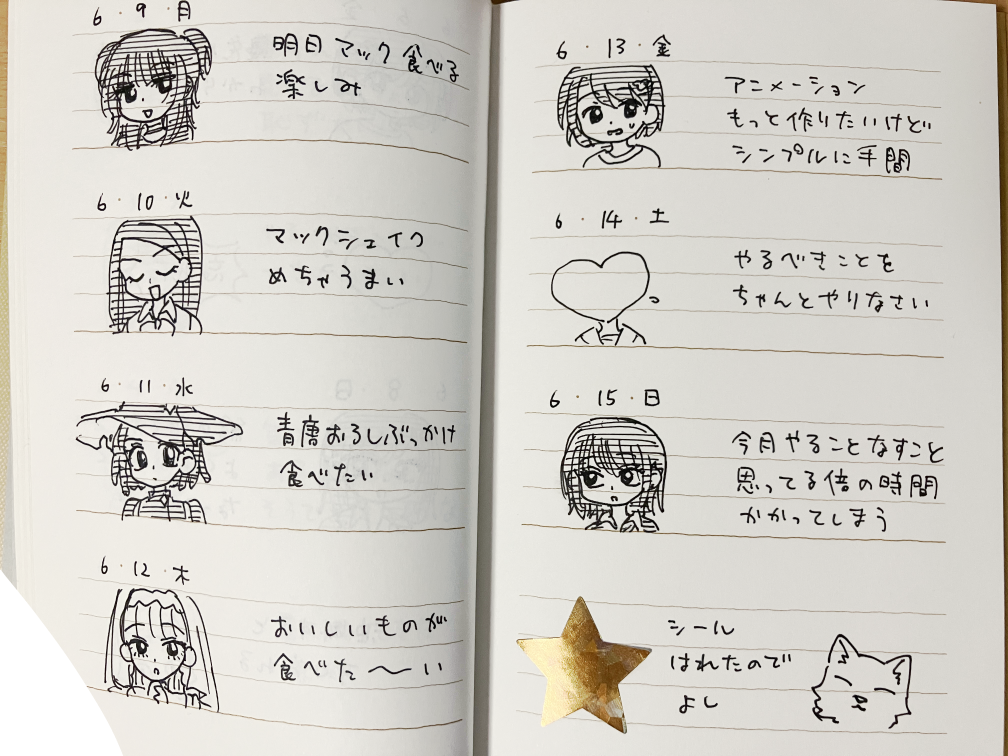 6・9・月
明日マック食べる
楽しみ
6・10・火
マックシェイク
めちゃうまい
6・11・水
青唐おろしぶっかけ
食べたい
6・12・木
おいしいものが
食べた〜い
6・13・金
アニメーション
もっと作りたいけど
シンプルに手間
6・14・土
やるべきことを
ちゃんとやりなさい
6・15・日
今月やることなすこと
思ってる倍の時間
かかってしまう
シール
はれたので
よし